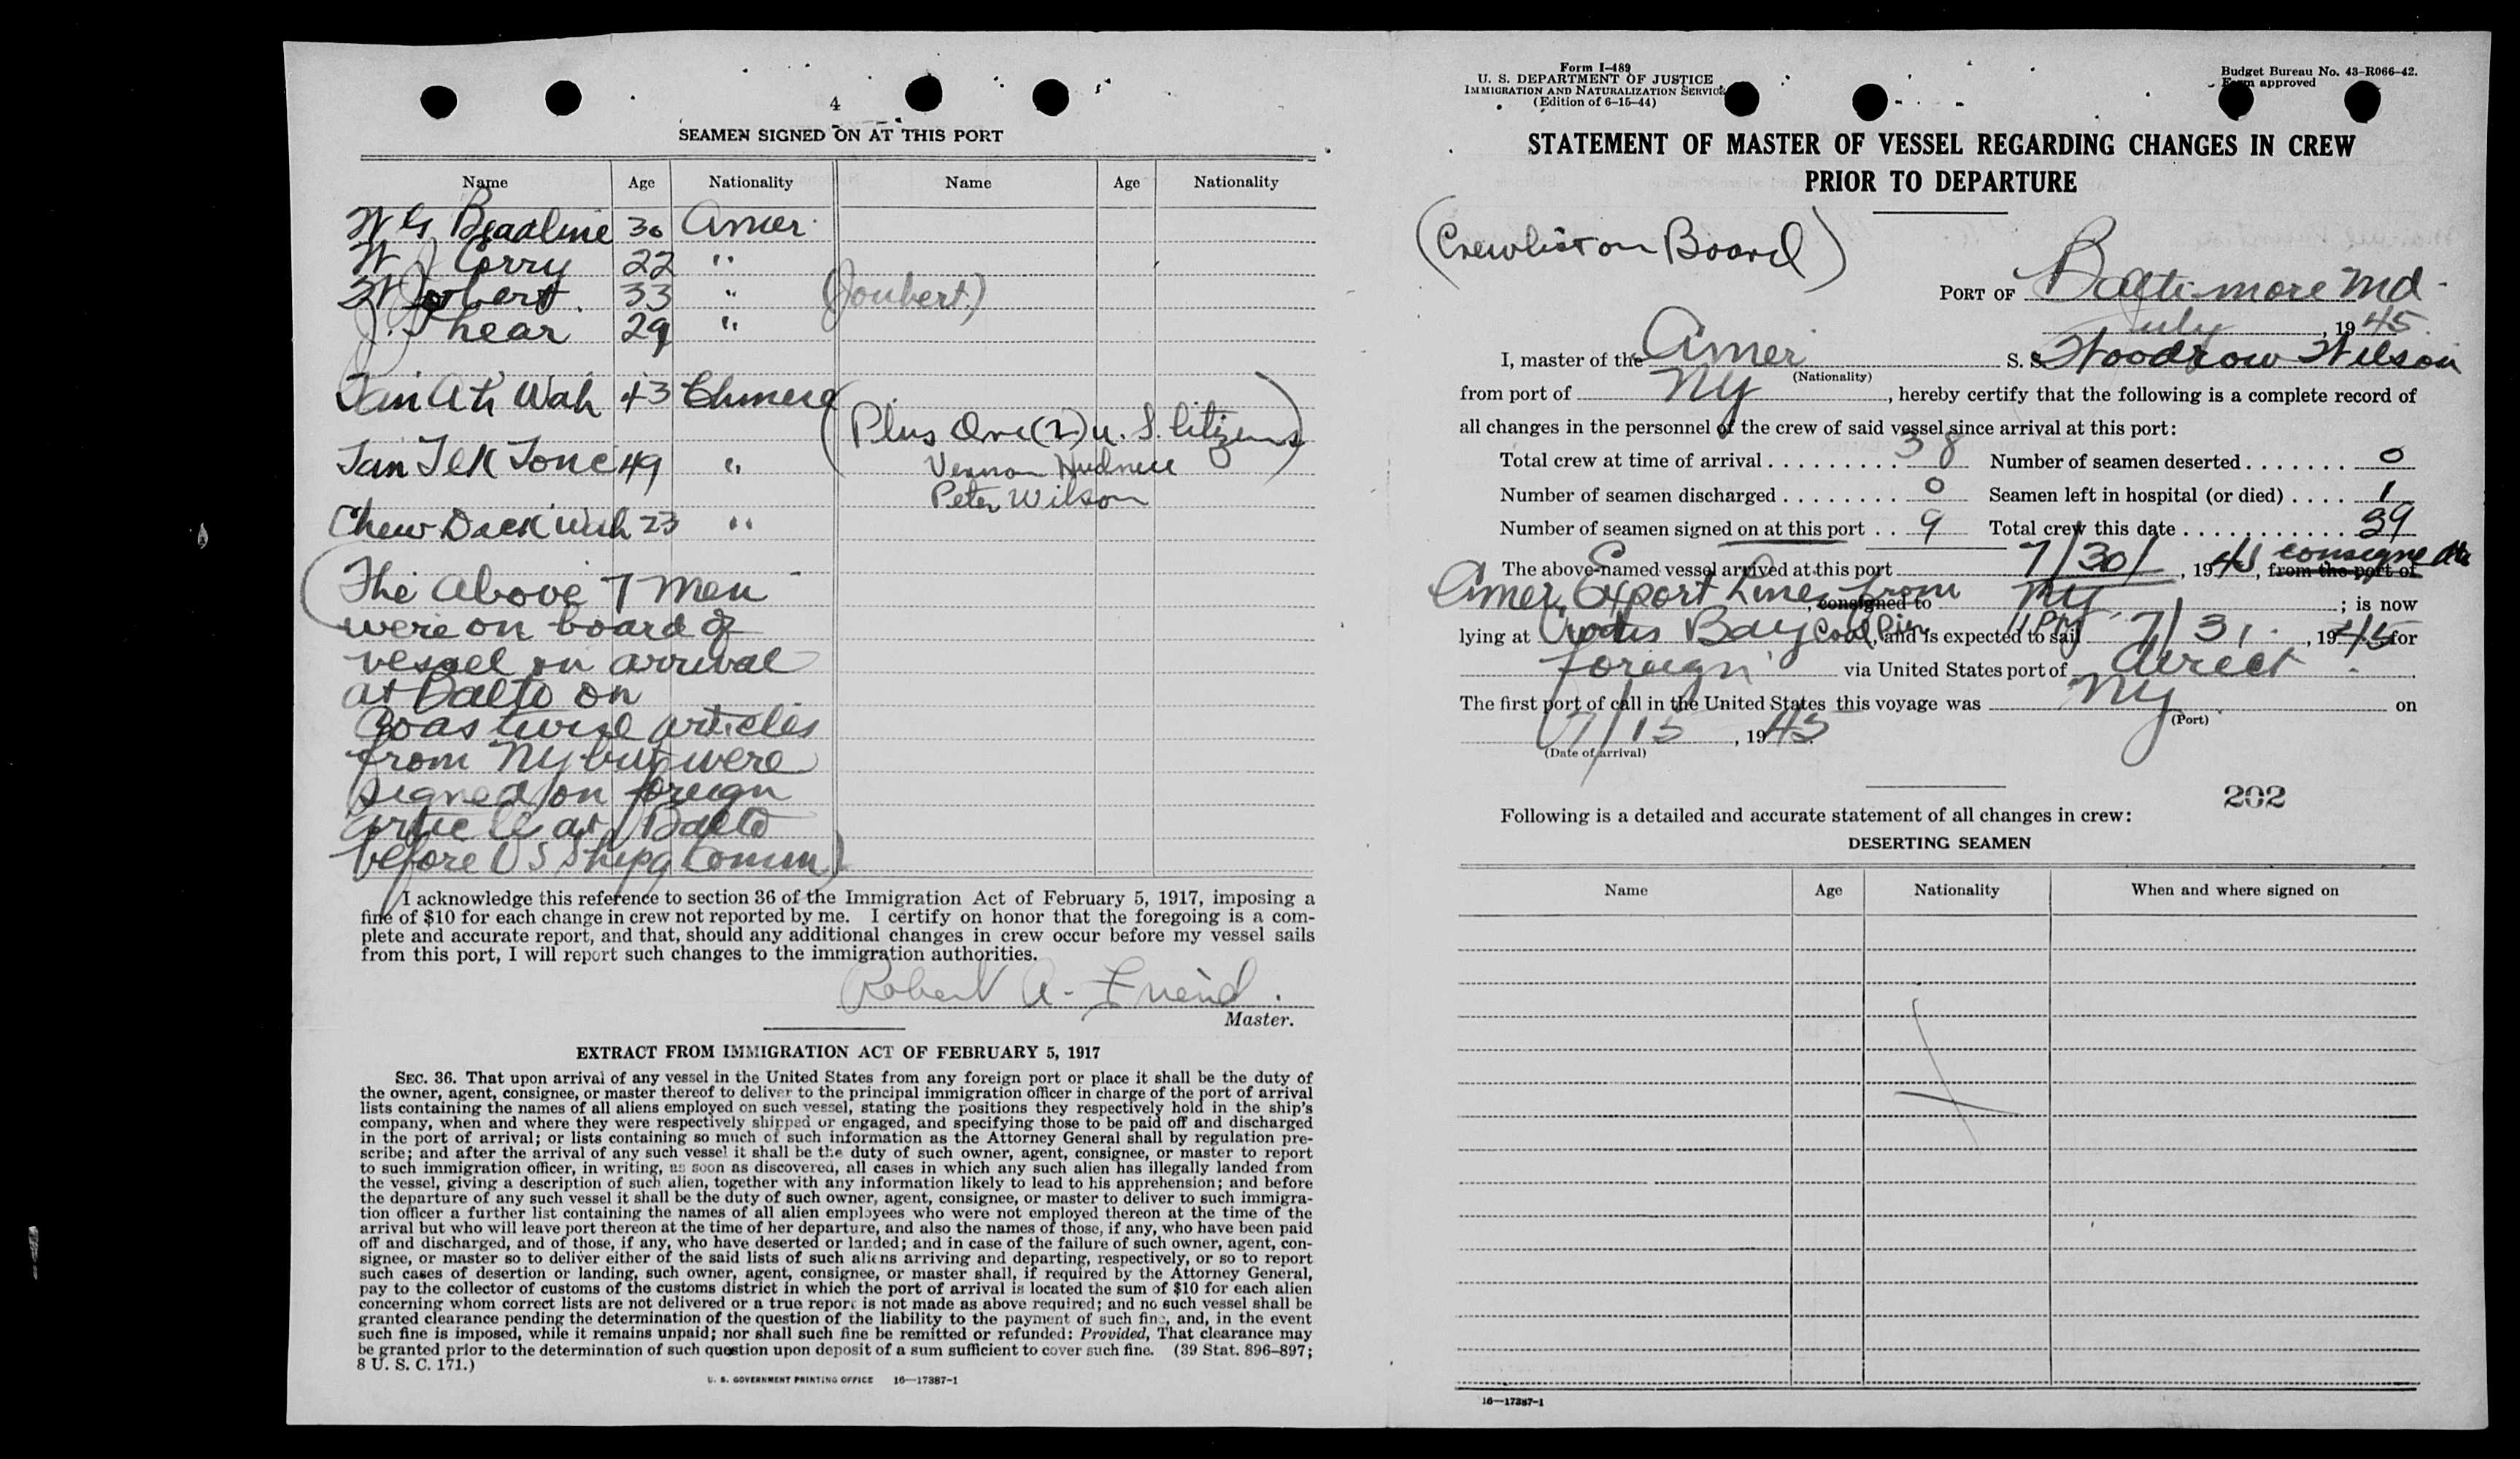 4
SEAMEN SIGNED ON AT THIS PORT
Name Age Nationality Name Age Nationality
W G Beadline 30 Amer.
W J Corry 22 "
W Jobert 33 " (Joubert)
J. Shear 29 "
Tan Ah Wah 43 Chinese
(Plus One (2) U. S. Citizens)
Tan Tek Tone 49 "
Vernon
Peter Wilson
Chew Dack Wah 23 "
(The above 7 men
were on board of
vessel on arrival
at Balto on
Coastwise articles
from NY but were
signed on foreign
article at Balto
before US Shipg Comm)
I acknowledge this reference to section 36 of the Immigration Act of February 5, 1917, imposing a
fine of $10 for each change in crew not reported by me. I certify on honor that the foregoing is a com-
plete and accurate report, and that, should any additional changes in crew occur before my vessel sails
from this port, I will report such changes to the immigration authorities.
Robert A. Friend.
Master.
EXTRACT FROM IMMIGRATION ACT OF FEBRUARY 5, 1917
SEC. 36. That upon arrival of any vessel in the United States from any foreign port or place it shall be the duty of
the owner, agent, consignee, or master thereof to deliver to the principal immigration officer in charge of the port of arrival
lists containing the names of all aliens employed on such vessel, stating the positions they respectively hold in the ship's
company, when and where they were respectively shipped or engaged, and specifying those to be paid off and discharged
in the port of arrival; or lists containing so much of such information as the Attorney General shall by regulation pre-
scribe; and after the arrival of any such vessel it shall be the duty of such owner, agent, consignee, or master to report
to such immigration officer, in writing, as soon as discovered, all cases in which any such alien has illegally landed from
the vessel, giving a description of such alien, together with any information likely to lead to his apprehension; and before
the departure of any such vessel it shall be the duty of such owner, agent, consignee, or master to deliver to such immigra-
tion officer a further list containing the names of all alien employees who were not employed thereon at the time of the
arrival but who will leave port thereon at the time of her departure, and also the names of those, if any, who have been paid
off and discharged, and of those, if any, who have deserted or landed; and in case of the failure of such owner, agent, con-
signee, or master so to deliver either of the said lists of such aliens arriving and departing, respectively, or so to report
such cases of desertion or landing, such owner, agent, consignee, or master shall, if required by the Attorney General,
pay to the collector of customs of the customs district in which the port of arrival is located the sum of $10 for each alien
concerning whom correct lists are not delivered or a true report is not made as above required; and no such vessel shall be
granted clearance pending the determination of the question of the liability to the payment of such fine, and, in the event
such fine is imposed, while it remains unpaid; nor shall such fine be remitted or refunded: Provided, That clearance may
be granted prior to the determination of such question upon deposit of a sum sufficient to cover such fine. (39 Stat. 896–897;
8 U. S. C. 171.)
U. S. GOVERNMENT PRINTING OFFICE 16—17387-1
Form I-489
U. S. DEPARTMENT OF JUSTICE
IMMIGRATION AND NATURALIZATION SERVICE
(Edition of 6-15-44)
Budget Bureau No. 43-R066-42.
Form approved
STATEMENT OF MASTER OF VESSEL REGARDING CHANGES IN CREW
PRIOR TO DEPARTURE
(Crewlist on Board)
PORT OF Baltimore Md.
July, 1945.
I, master of the Amer S. S. Woodrow Wilson
(Nationality)
from port of NY, hereby certify that the following is a complete record of
all changes in the personnel of the crew of said vessel since arrival at this port:
Total crew at time of arrival . . . . . . . . . . 38 Number of seamen deserted . . . . . . . 0
Number of seamen discharged . . . . . . . . 0 Seamen left in hospital (or died) . . . . 1
Number of seamen signed on at this port . . 9 Total crew this date . . . . . . . . . . . . 39
The above-named vessel arrived at this port 7/30/, 1945, from the port of consigned to
Amer. Export Lines from, consigned to NY; is now
lying at Curtis Bay Coal Pier, and is expected to sail 11 PM 7/31, 1945 for
foreign via United States port of direct.
The first port of call in the United States this voyage was NY on
(Port)
7/15, 1945.
(Date of arrival)
202
Following is a detailed and accurate statement of all changes in crew:
DESERTING SEAMEN
Name Age Nationality When and where signed on
16—17387-1